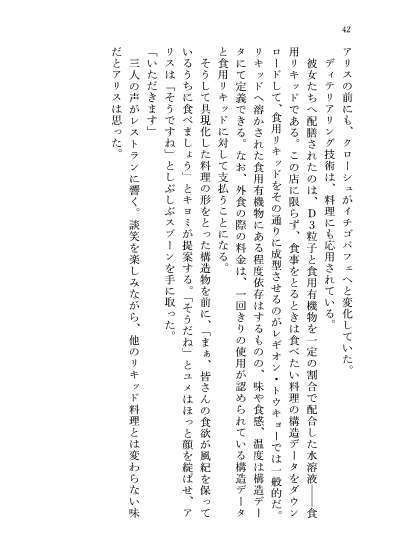 42
アリスの前にも、クローシュがイチゴパフェへと変化していた。
ディテリアリング技術は、料理にも応用されている。
彼女たちへ配膳されたのは、D3粒子と食用有機物を一定の割合で配合した水溶液――食
用リキッドである。この店に限らず、食事をとるときは食べたい料理の構造データをダウン
ロードして、食用リキッドをその通りに成型させるのがレギオン・トウキョーでは一般的だ。
リキッドへ溶かされた食用有機物にある程度依存はするものの、味や食感、温度は構造デー
タにて定義できる。なお、外食の際の料金は、一回きりの使用が認められている構造データ
と食用リキッドに対して支払うことになる。
そうして具現化した料理の形をとった構造物を前に、「まぁ、皆さんの食欲が風紀を保って
いるうちに食べましょう」とキヨミが提案する。「そうだね」とユメはほっと顔を綻ばせ、ア
リスは『そうですね」としぶしぶスプーンを手に取った。
「いただきます」
三人の声がレストランに響く。談笑を楽しみながら、他のリキッド料理とは変わらない味
だとアリスは思った。